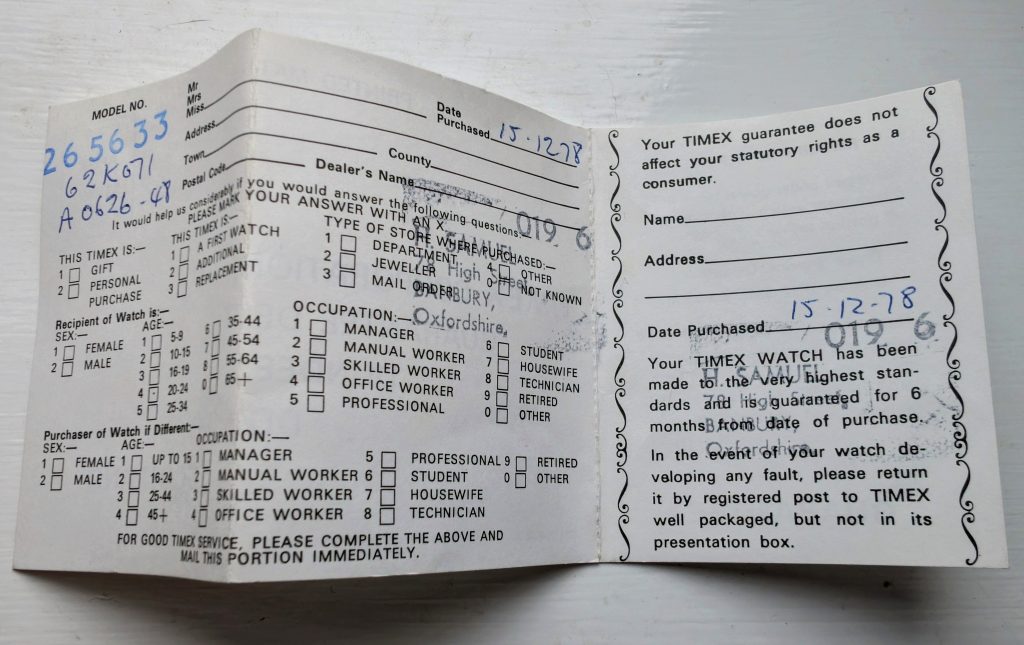 MODEL NO.
265633
62K071
A 0626-48
Mr
Mrs
Miss
Date
Purchased 15.12.78
Address
Town
County
Postal Code
Dealer's Name
It would help us considerably if you would answer the following questions:—
PLEASE MARK YOUR ANSWER WITH AN X
019 6
H. SAMUEL
78 High Street,
BANBURY,
Oxfordshire.
THIS TIMEX IS:—
1 GIFT
2 PERSONAL
PURCHASE
THIS TIMEX IS:—
1 A FIRST WATCH
2 ADDITIONAL
3 REPLACEMENT
TYPE OF STORE WHERE PURCHASED:—
1 DEPARTMENT 4 OTHER
2 JEWELLER 0 NOT KNOWN
3 MAIL ORDER
Recipient of Watch is:—
SEX:—
1 FEMALE
2 MALE
AGE:—
1 5-9 6 35-44
2 10-15 7 45-54
3 16-19 8 55-64
4 20-24 0 65+
5 25-34
OCCUPATION:—
1 MANAGER 6 STUDENT
2 MANUAL WORKER 7 HOUSEWIFE
3 SKILLED WORKER 8 TECHNICIAN
4 OFFICE WORKER 9 RETIRED
5 PROFESSIONAL 0 OTHER
Purchaser of Watch if Different:—
SEX:—
1 FEMALE
2 MALE
AGE:—
1 UP TO 15
2 16-24
3 25-44
4 45+
OCCUPATION:—
1 MANAGER 5 PROFESSIONAL 9 RETIRED
2 MANUAL WORKER 6 STUDENT 0 OTHER
3 SKILLED WORKER 7 HOUSEWIFE
4 OFFICE WORKER 8 TECHNICIAN
FOR GOOD TIMEX SERVICE, PLEASE COMPLETE THE ABOVE AND
MAIL THIS PORTION IMMEDIATELY.
Your TIMEX guarantee does not
affect your statutory rights as a
consumer.
Name
Address
Date Purchased 15-12-78
019 6
H. SAMUEL
78 High Street,
BANBURY,
Oxfordshire
Your TIMEX WATCH has been
made to the very highest stan-
dards and is guaranteed for 6
months from date of purchase.
In the event of your watch de-
veloping any fault, please return
it by registered post to TIMEX
well packaged, but not in its
presentation box.